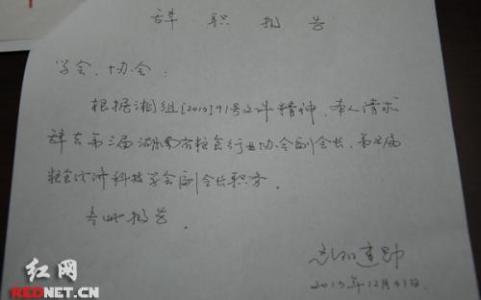 辞职报告
学会、协会：
根据湘组[2013]91号文件精神，本人请求
辞去第三届湖南省粮食行业协会副会长、第七届
粮食经济科技学会副会长职务。
专此报告
2013年12月31日
红网
REDNET.CN